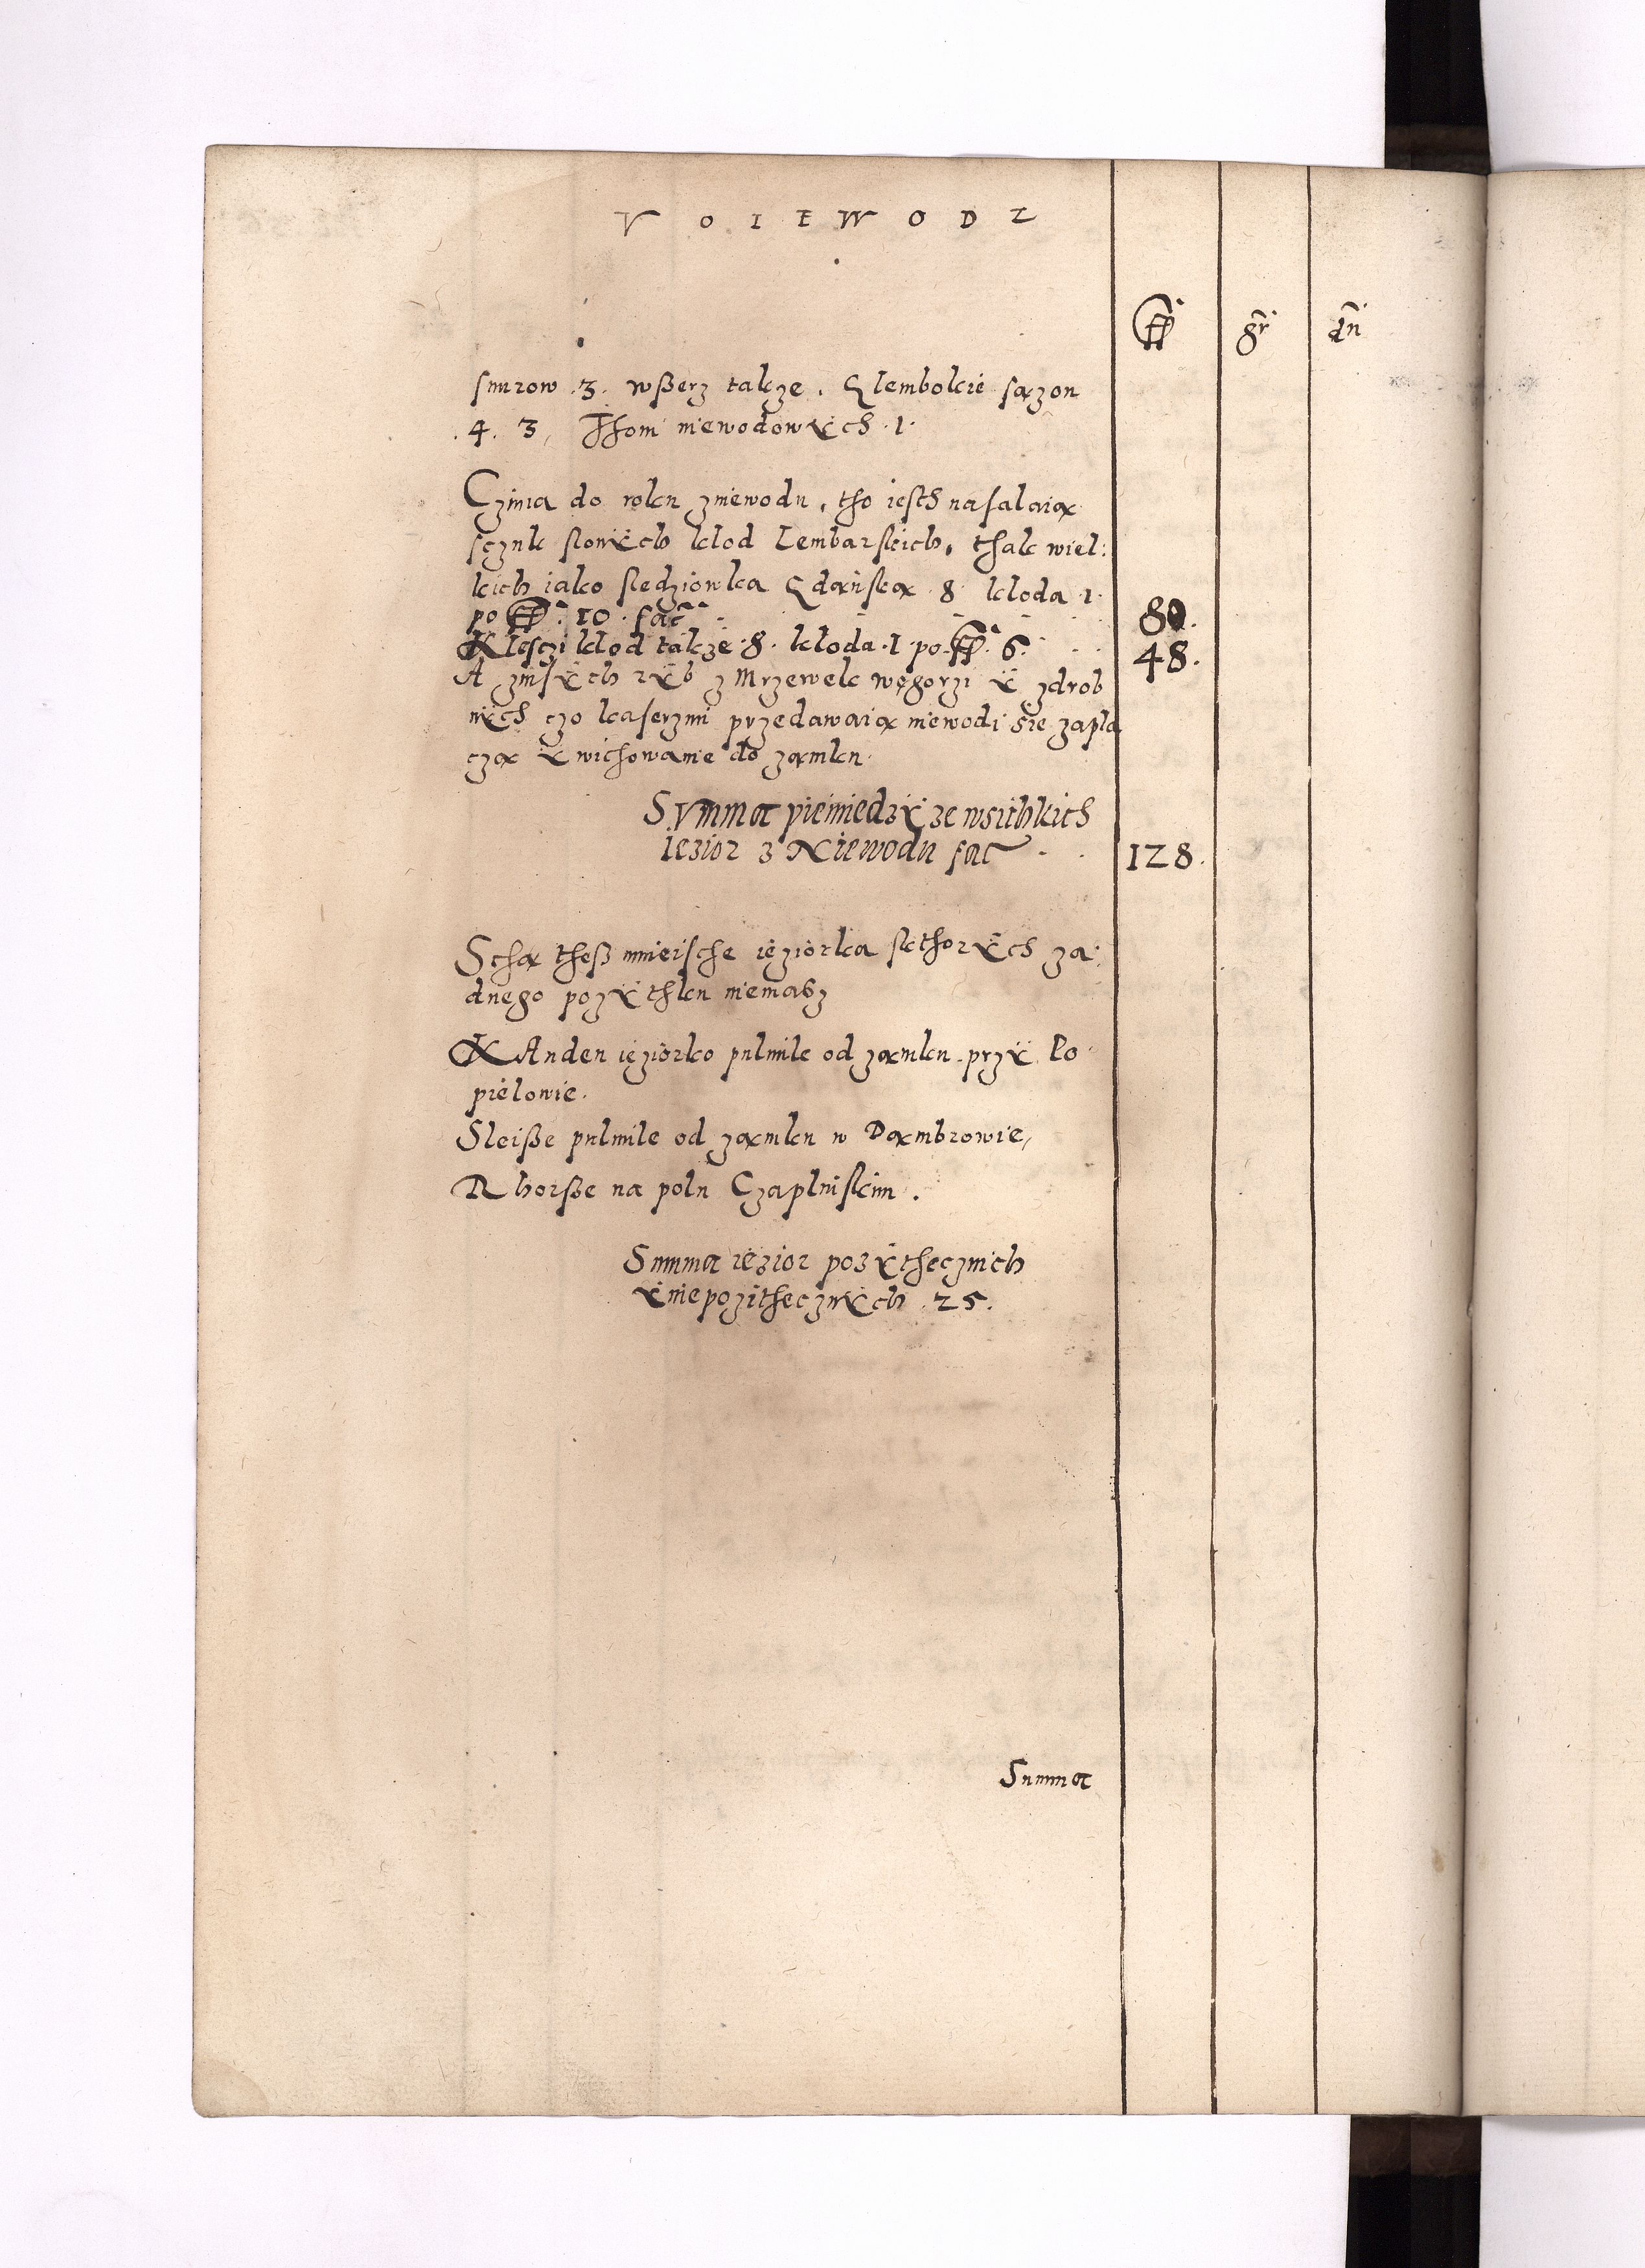 VOIEWODZ
ff gr dn
snurow .3. wßerz takze. Glembokie sązon
.4. 3, Thoni niewodowÿch .1.
Czinia do roku zniewodu, tho iesth nasalaią
sczuk słonÿch klod Lembarskich, thak wiel:
kich iako sledziowka Gdańską 8 kloda 1.
po ff. 10. fač 80.
Klesczi klod takze .8. kloda .1 po ff. 6. 48.
A zinsÿch rÿb z Mrzewek węgorzi ÿ zdrob
nÿch czo kaserzmi przedawaią niewodi sie zapla
czą ÿ wichowanie do zamku.
SVmma pieniedzÿ ze wsithkich
iezior z Niewodu fač 128.
Schą theß mnieische ieziorka skthorÿch za:
dnego pozÿthku niemasz
KAnden ieziorko pulmile od zamku przÿ Po
pielowie.
Sleiße pulmile od zamku w Dąmbrowie,
Rhorße na polu Czaplniskim.
Summa iezior pozÿthecznich
ÿ niepozithecznÿch .25.
Summa